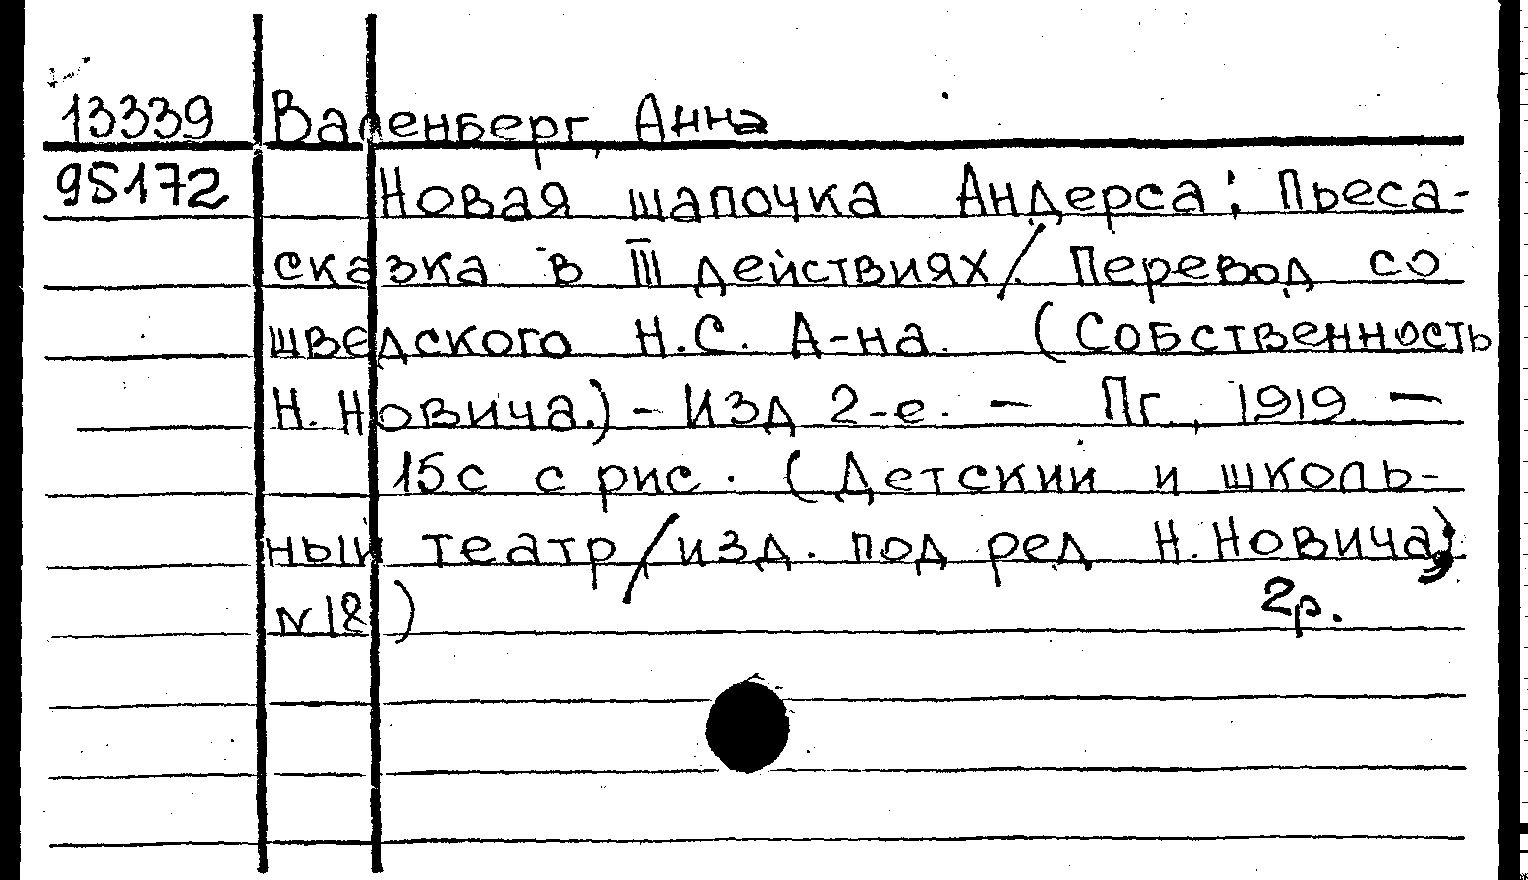 13339 Валенберг, Анна
95172 Новая шапочка Андерса: Пьеса-
сказка в III действиях/ Перевод со
шведского Н.С. А-на. (Собственность
Н. Новича.) - Изд 2-е. - Пг., 1919. -
15с с рис. (Детский и школь-
ный театр/изд. под ред Н. Новича;
N 18)
2р.